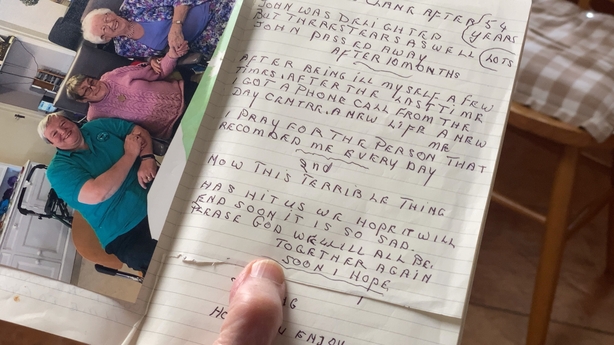 AFTER 54
JOHN WAS DELIGHTED YEARS
BUT THRERSTEARS AS WELL LOTS
JOHN PASSED AWAY
AFTER 10 MONTHS
AFTER BEING ILL MYSELF A FEW
TIMES. AFTER THE LAST TIME
I GOT A PHONE CALL FROM THE
DAY CENTRE. A NEW LIFE A NEW
ME
I PRAY FOR THE PERSON THAT
RECOMDED ME EVERY DAY
2nd
NOW THIS TERRIBLE THING
HAS HIT US WE HOPE IT WILL
END SOON IT IS SO SAD.
PLEASE GOD WE WILL ALL BE.
TOGETHER AGAIN
SOON I HOPE
ENJOY